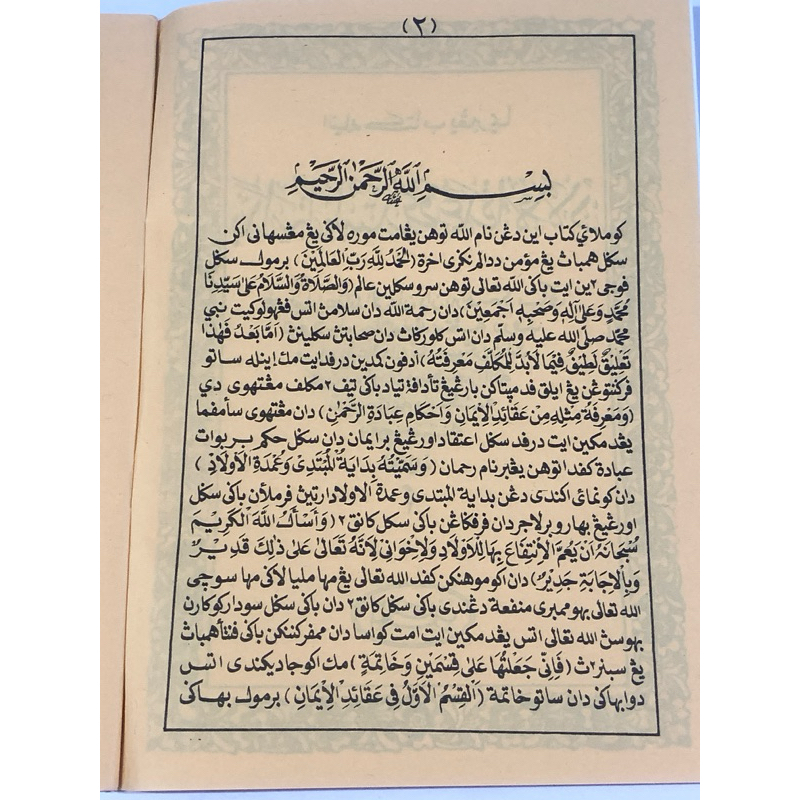 (٢)
بِسْمِ اللهِ الرَّحْمٰنِ الرَّحِيْمِ
كوملائي كتاب اين دڠن نام الله توهن يڠامت موره لاڬي يڠ مڠسهاني اكن
سڬل همباث يڠ مؤمن ددالم نڬري اخرة (اَلْحَمْدُ لِلّٰهِ رَبِّ الْعَالَمِيْنَ) برمول سڬل
فوجي٢ين ايت باڬي الله تعالى توهن سرو سكلين عالم (وَالصَّلَاةُ وَالسَّلَامُ عَلٰى سَيِّدِنَا
مُحَمَّدٍ وَعَلٰى اٰلِهِ وَصَحْبِهِ اَجْمَعِيْنَ) دان رحمة الله دان سلامث اتس فڠهولو كيت نبي
محمد صلّى الله عليه وسلّم دان اتس كلوركاث دان صحابتث سكلينث (اَمَّا بَعْدُ فَهٰذَا
تَعْلِيْقٌ لَطِيْقٌ فِيْمَا لَابُدَّ لِلْمُكَلَّفِ مَعْرِفَتُهُ) ادفون كمدين درفدايت مك اينله ساتو
فركنتوڠن يڠ ايلق فد مپتاكن بارڠيڠ تأدافة تياد باڬي تيف٢ مكلف مڠتهوي دي
(وَمَعْرِفَةُ مِثْلِهِ مِنْ عَقَائِدِ الْاِيْمَانِ وَاَحْكَامِ عِبَادَةِ الرَّحْمٰنِ) دان مڠتهوي سأمفما
يڠدمكين ايت درفد سڬل اعتقاد اورڠيڠ برايمان دان سڬل حكم بربوات
عبادة كفدا توهن يڠبرنام رحمان (وَسَمَّيْتُهُ بِدَايَةُ الْمُبْتَدِى وَعُمْدَةُ الْاَوْلَادِ)
دان كونماي اكندي دڠن بداية المبتدي وعمدة الاولاد ارتيث فرملأن باڬي سڬل
اورڠيڠ بهارو برلاجر دان فرفكاڠن باڬي سڬل كانق٢ (وَاَسْأَلُ اللهَ الْكَرِيْمَ
سُبْحَانَهُ اَنْ يَعُمَّ الْاِنْتِفَاعَ بِهَا لِلْاَوْلَادِ وَلِاِخْوَانِي لِاَنَّهُ تَعَالٰى عَلٰى ذٰلِكَ قَدِيْرٌ
وَبِالْاِجَابَةِ جَدِيْرٌ) دان اكو موهنكن كفد الله تعالى يڠ مها مليا لاڬي مها سوچي
الله تعالى بهو ممبري منفعة دڠندي باڬي سڬل كانق٢ دان باڬي سڬل سودارکو كارن
بهوسث الله تعالى اتس يڠدمكين ايت امت كواسا دان ممفركننكن باڬي فنتأ همباث
يڠ سبنر٢ث (فَاِنِّي جَعَلْتُهَا عَلٰى قِسْمَيْنِ وَخَاتِمَةٍ) مك اكو جاديكندي اتس
دوا بهاڬي دان ساتو خاتمة (اَلْقِسْمُ الْاَوَّلُ فِى عَقَائِدِ الْاِيْمَانِ) برمول بهاڬي